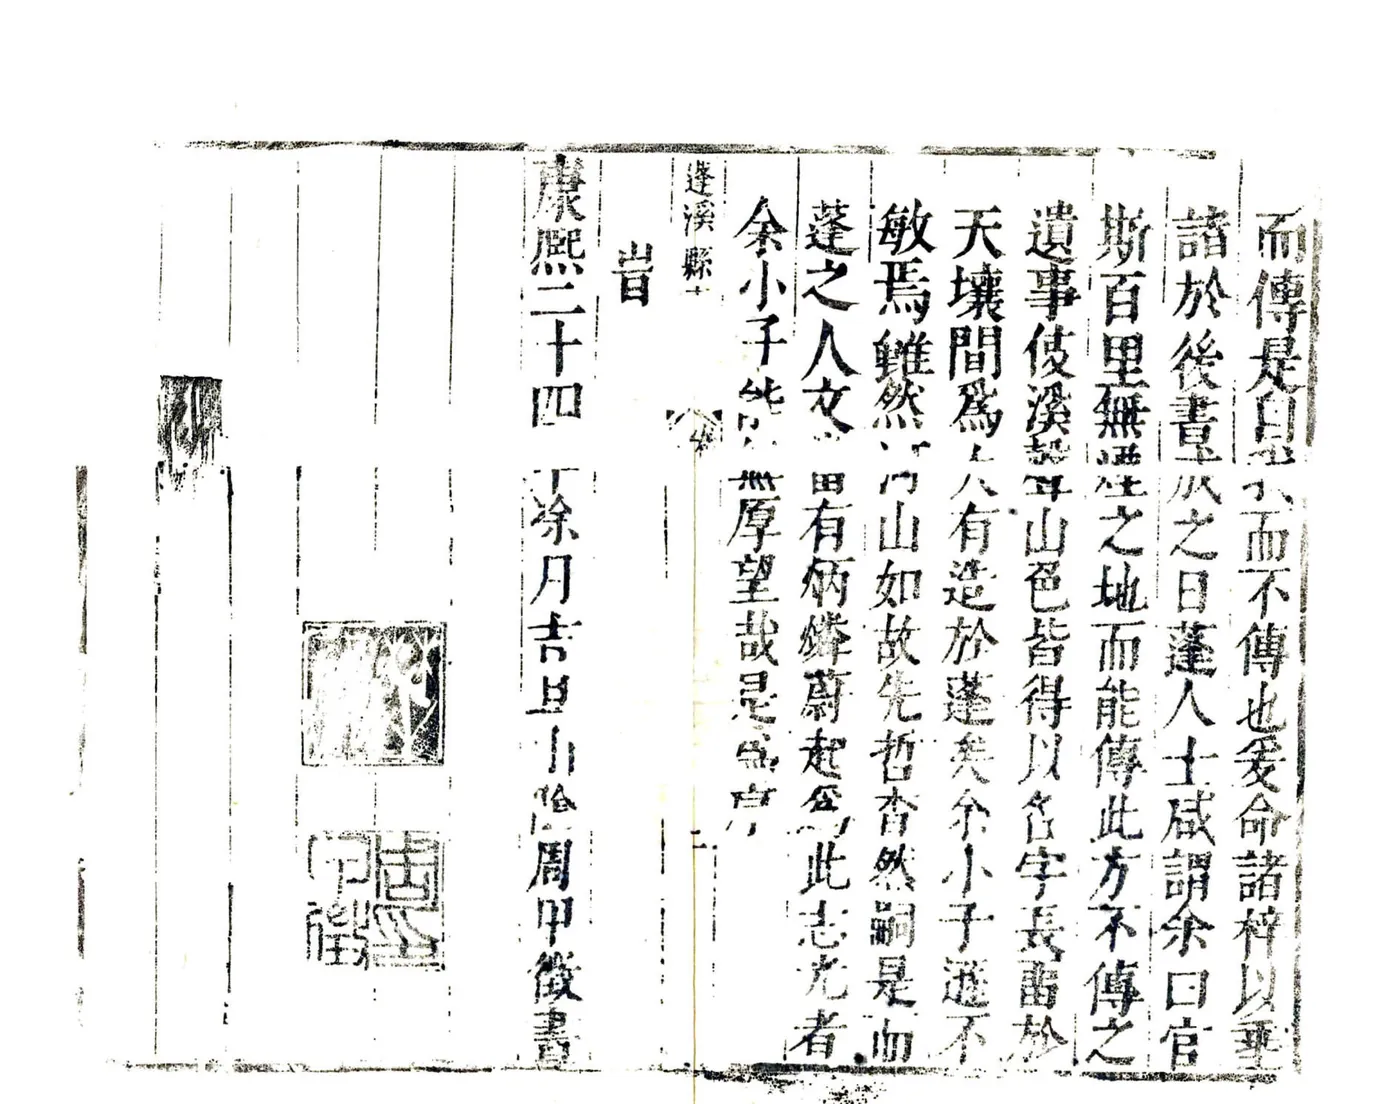 而傳是自我而不傳也爰命諸梓以垂
諸於後書成之日蓬人士咸謂余曰官
斯百里無煙之地而能傳此方不傳之
遺事伎溪磬山色皆得以名字長畱於
天壤間爲大有造於蓬矣余小子遜不
敏焉雖然河山如故先哲杳然嗣是而
蓬之人文當有炳燐蔚起爲此志尤者
余小子能無厚望哉是爲序
蓬溪縣
二
旹
康熙二十四年涂月吉旦山陰周甲徵書
周甲徵印